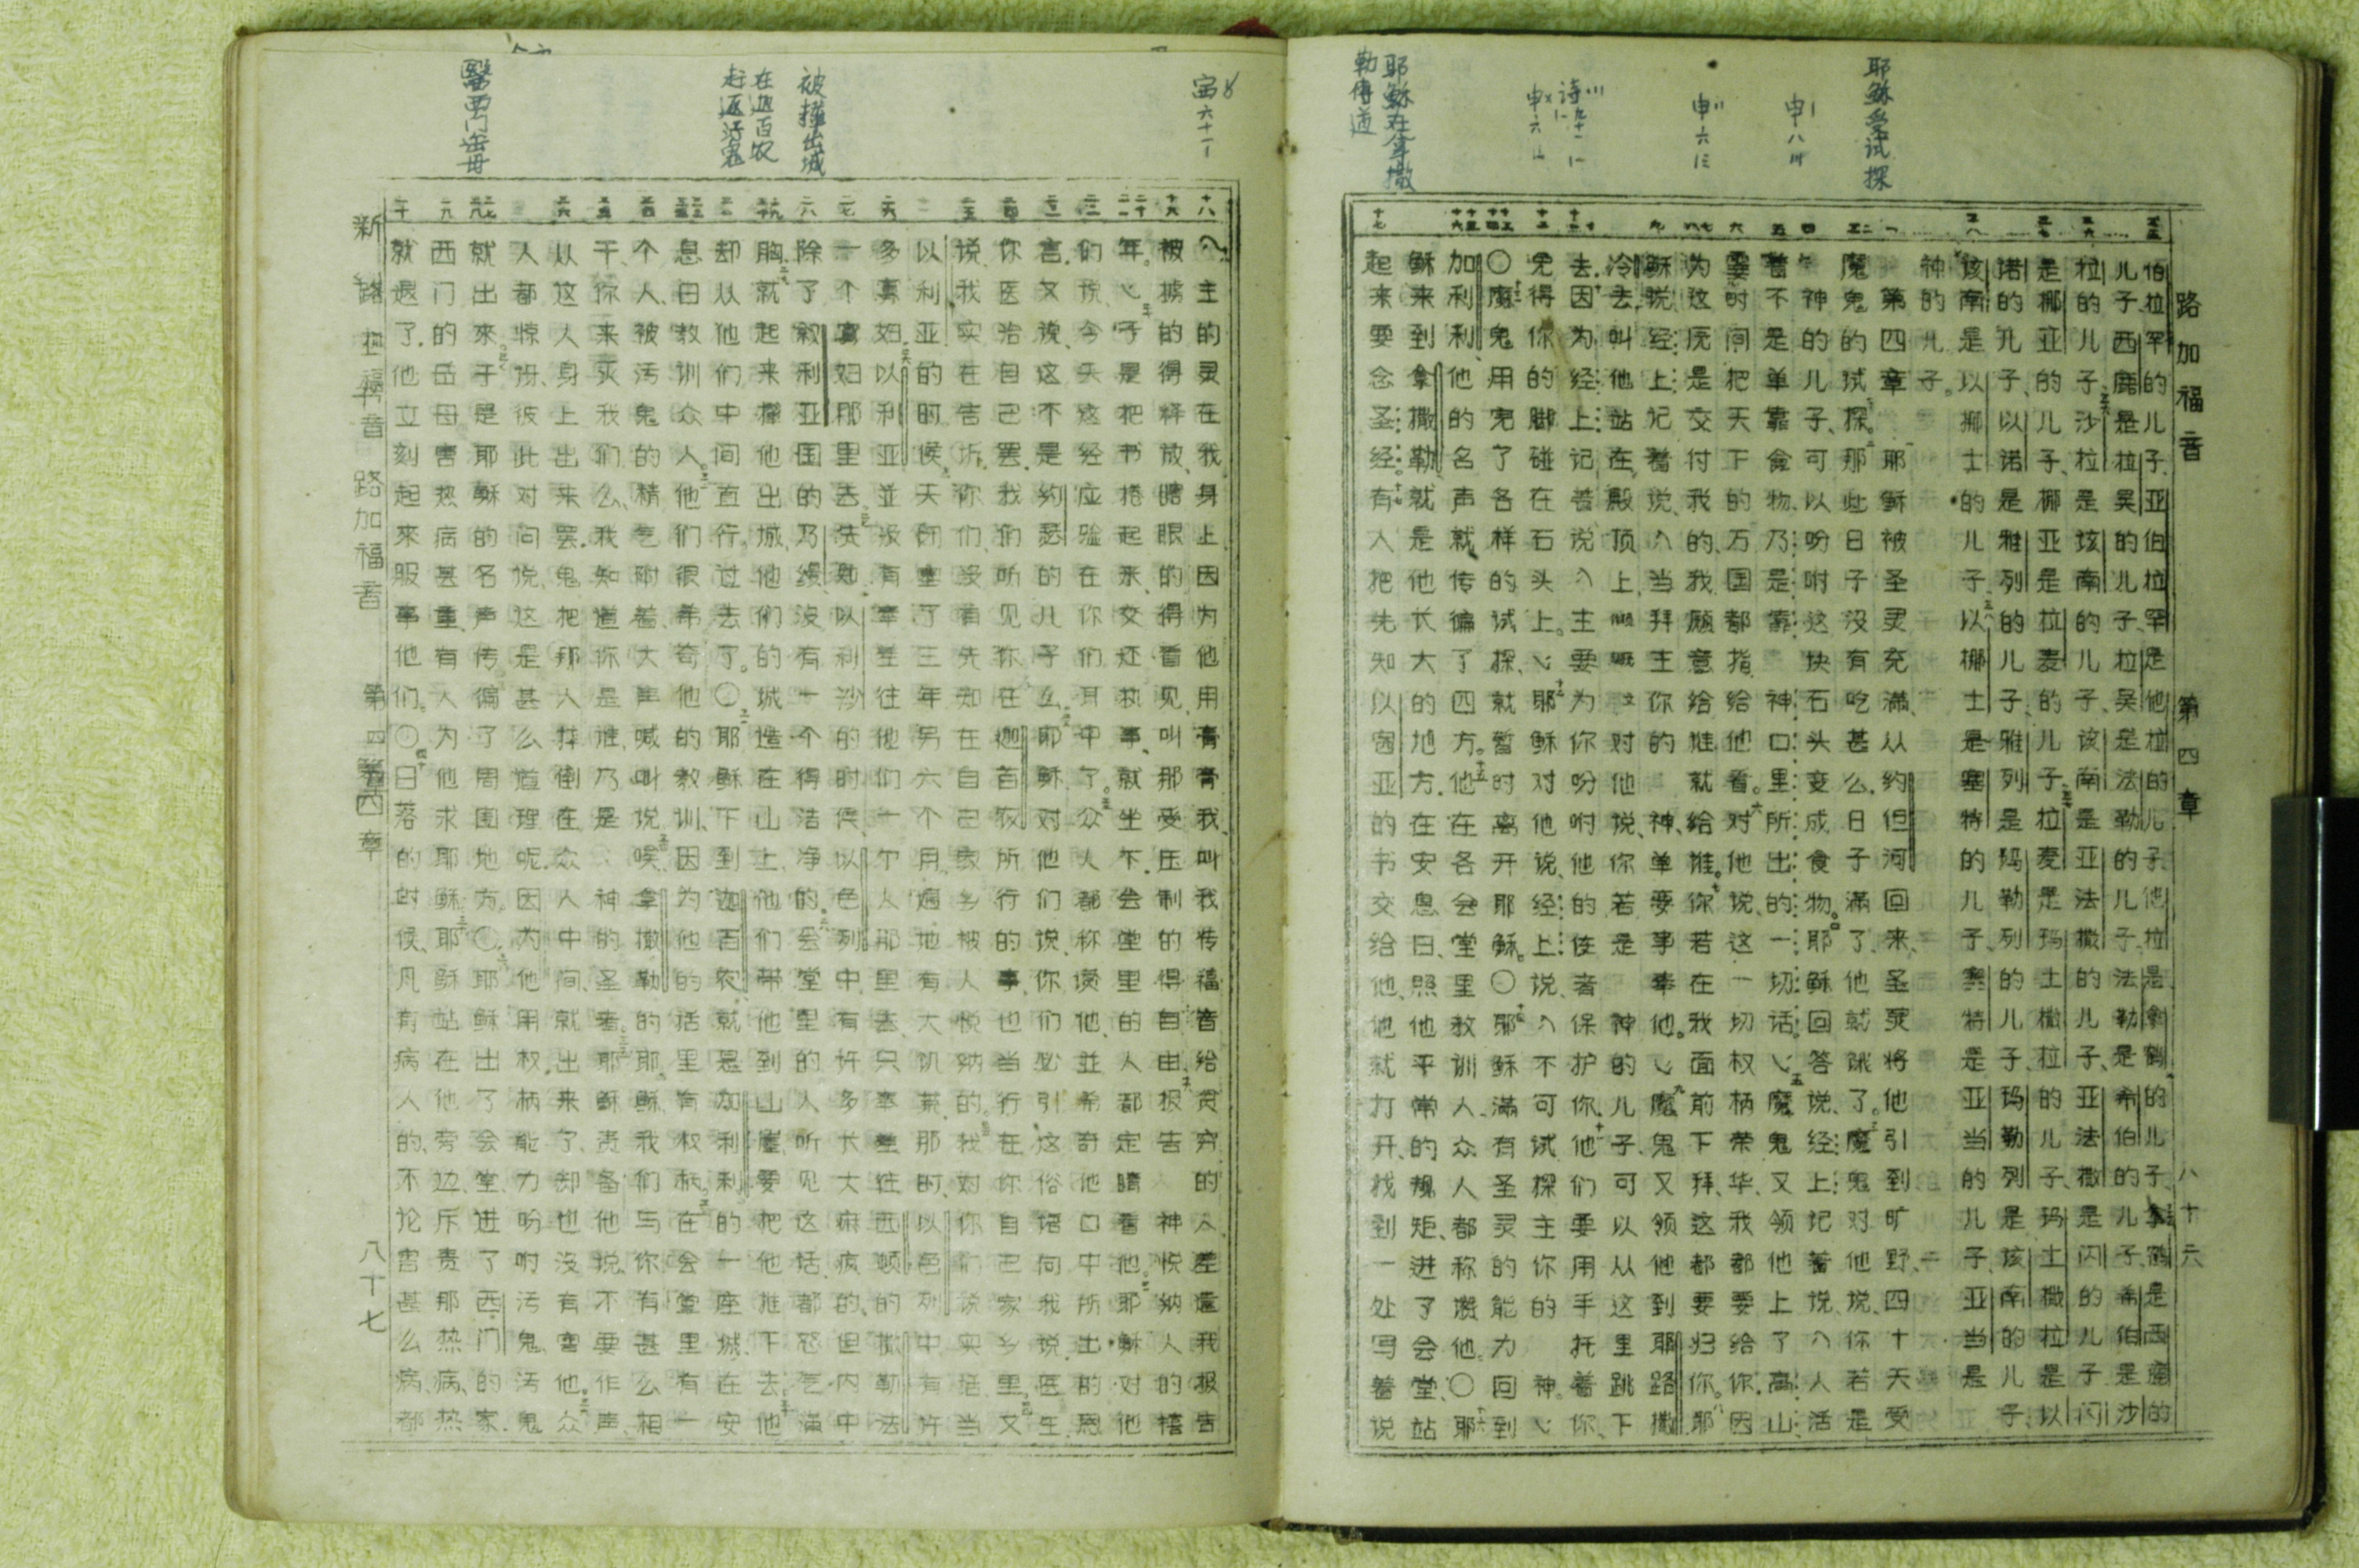 路加福音 第四章 八十六
耶稣受试探
申八
申六
诗九十一
申六
耶稣在拿撒勒傳道
伯拉罕的儿子,亚伯拉罕是他拉的儿子,他拉是拿鹤的儿子,拿鹤是西鹿的
儿子,西鹿是拉吴的儿子,拉吴是法勒的儿子,法勒是希伯的儿子,希伯是沙
拉的儿子,沙拉是该南的儿子,该南是亚法撒的儿子,亚法撒是闪的儿子闪
是挪亚的儿子,挪亚是拉麦的儿子,拉麦是玛土撒拉的儿子,玛土撒拉是以
诺的儿子,以诺是雅列的儿子,雅列是玛勒列的儿子,玛勒列是该南的儿子,
该南是以挪士的儿子,以挪士是塞特的儿子,塞特是亚当的儿子,亚当是
神的儿子。
第四章 耶稣被圣灵充满,从约但河回来,圣灵将他引到旷野,四十天受
魔鬼的试探。那些日子没有吃甚么.日子满了,他就饿了。魔鬼对他说,你若是
神的儿子,可以吩咐这块石头变成食物。耶稣回答说,经上记着说,人活
着不是单靠食物,乃是靠 神口里所出的一切话。魔鬼又领他上了高山
霎时间把天下的万国都指给他看。对他说,这一切权柄荣华,我都要给你,因
为这原是交付我的,我愿意给谁就给谁。你若在我面前下拜,这都要归你。耶
稣说经上记着说,当拜主你的 神,单要事奉他。魔鬼又领他到耶路撒
冷去,叫他站在殿顶上,对他说,你若是 神的儿子,可以从这里跳下
去.因为经上记着说,主要为你吩咐他的使者保护你,他们要用手托着你,
免得你的脚碰在石头上。耶稣对他说,经上说,不可试探主你的 神。
○魔鬼用完了各样的试探,就暂时离开耶稣。○耶稣满有圣灵的能力回到
加利利,他的名声就传徧了四方。他在各会堂里教训人,众人都称赞他。○耶
稣来到拿撒勒,就是他长大的地方.在安息日,照他平常的规矩,进了会堂,站
起来要念圣经。有人把先知以赛亚的书交给他,他就打开,找到一处写着说
赛六十一
被撵出城
在迦百农赶逐污鬼
醫西门岳母
主的灵在我身上因为他用膏膏我,叫我传福音给贫穷的人差遣我报告
被掳的得释放,瞎眼的得看见,叫那受压制的得自由,报告 神悦纳人的禧
年。于是把书捲起来,交还执事,就坐下.会堂里的人都定睛看他。耶稣对他
们说,今天这经应验在你们耳中了。众人都称赞他,並希奇他口中所出的恩
言.又说,这不是约瑟的儿子么。耶稣对他们说,你们必引这俗语向我说,医生
你医治自己罢.我们听见你在迦百农所行的事,也当行在你自己家乡里。又
说,我实在告诉你们,没有先知在自己家乡被人悦纳的。我对你们说实话.当
以利亚的时候,天闭塞了三年另六个月,遍地有大饥荒,那时,以色列中有许
多寡妇,以利亚並没有奉差往他们一个人那里去,只奉差往西顿的撒勒法
一个寡妇那里去。先知以利沙的时候,以色列中有许多长大麻疯的,但内中
除了叙利亚国的乃缦,没有一个得洁净的。会堂里的人听见这话,都怒气满
胸.就起来撵他出城,他们的城造在山上,他们带他到山崖,要把他推下去。他
却从他们中间直行,过去了。○耶稣下到迦百农,就是加利利的一座城.在安
息日教训众人。他们很希奇他的教训,因为他的话里有权柄。在会堂里有一
个人,被污鬼的精气附着,大声喊叫说,唉,拿撒勒的耶稣,我们与你有甚么相
干,你来灭我们么,我知道你是谁,乃是 神的圣者。耶稣责备他说,不要作声,
从这人身上出来罢.鬼把那人摔倒在众人中间,就出来了,却也没有害他。众
人都惊讶,彼此对问说,这是甚么道理呢.因为他用权柄能力吩咐污鬼,污鬼
就出來。于是耶稣的名声传徧了周围地方。○耶稣出了会堂,进了西门的家.
西门的岳母害热病甚重,有人为他求耶稣。耶稣站在他旁边,斥责那热病,热
就退了.他立刻起來服事他们。○日落的时候,凡有病人的,不论害甚么病,都
新 路加福音 路加福音 第四章 第四章 八十七